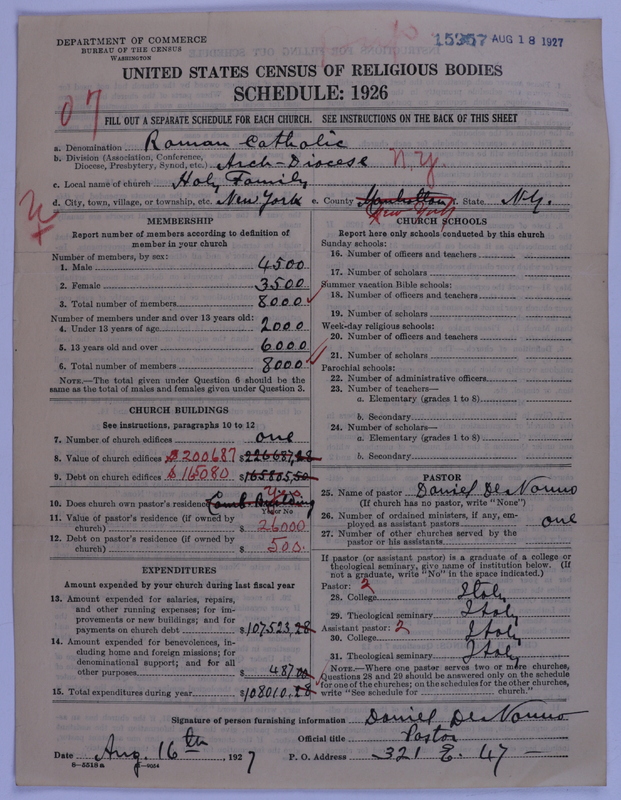 DEPARTMENT OF COMMERCE
BUREAU OF THE CENSUS
WASHINGTON
15357 AUG 18 1927
UNITED STATES CENSUS OF RELIGIOUS BODIES
SCHEDULE: 1926
07
FILL OUT A SEPARATE SCHEDULE FOR EACH CHURCH. SEE INSTRUCTIONS ON THE BACK OF THIS SHEET
a. Denomination Roman Catholic
b. Division (Association, Conference, Diocese, Presbytery, Synod, etc.) Arch-Diocese N.Y.
c. Local name of church Holy Family
d. City, town, village, or township, etc. New York e. County Manhattan New York f. State N.Y.
MEMBERSHIP
Report number of members according to definition of member in your church
Number of members, by sex:
1. Male 4500
2. Female 3500
3. Total number of members 8000
Number of members under and over 13 years old:
4. Under 13 years of age 2000
5. 13 years old and over 6000
6. Total number of members 8000
NOTE.—The total given under Question 6 should be the same as the total of males and females given under Question 3.
CHURCH BUILDINGS
See instructions, paragraphs 10 to 12
7. Number of church edifices one
8. Value of church edifices $200687 $226687,28
9. Debt on church edifices $165080 $165805,50
10. Does church own pastor's residence? Yes Comb. Building
Yes or No
11. Value of pastor's residence (if owned by church) $ 26000
12. Debt on pastor's residence (if owned by church) $ 500.
EXPENDITURES
Amount expended by your church during last fiscal year
13. Amount expended for salaries, repairs, and other running expenses; for improvements or new buildings; and for payments on church debt $107523,28
14. Amount expended for benevolences, including home and foreign missions; for denominational support; and for all other purposes $ 487 00
15. Total expenditures during year $108010.28
CHURCH SCHOOLS
Report here only schools conducted by this church
Sunday schools:
16. Number of officers and teachers
17. Number of scholars
Summer vacation Bible schools:
18. Number of officers and teachers
19. Number of scholars
Week-day religious schools:
20. Number of officers and teachers
21. Number of scholars
Parochial schools:
22. Number of administrative officers
23. Number of teachers—
a. Elementary (grades 1 to 8)
b. Secondary
24. Number of scholars—
a. Elementary (grades 1 to 8)
b. Secondary
PASTOR
25. Name of pastor Daniel De Nonno
(If church has no pastor, write "None")
26. Number of ordained ministers, if any, employed as assistant pastors one
27. Number of other churches served by the pastor or his assistants
If pastor (or assistant pastor) is a graduate of a college or theological seminary, give name of institution below. (If not a graduate, write "No" in the space indicated.)
Pastor: 2
28. College Italy
29. Theological seminary Italy
Assistant pastor: 2
30. College Italy
31. Theological seminary Italy
NOTE.—Where one pastor serves two or more churches, Questions 28 and 29 should be answered only on the schedule for one of the churches; on the schedules for the other churches, write "See schedule for church."
Signature of person furnishing information Daniel De Nonno
Official title Pastor
Date Aug. 16th, 1927 P. O. Address 321 E. 47 —
8—5518a